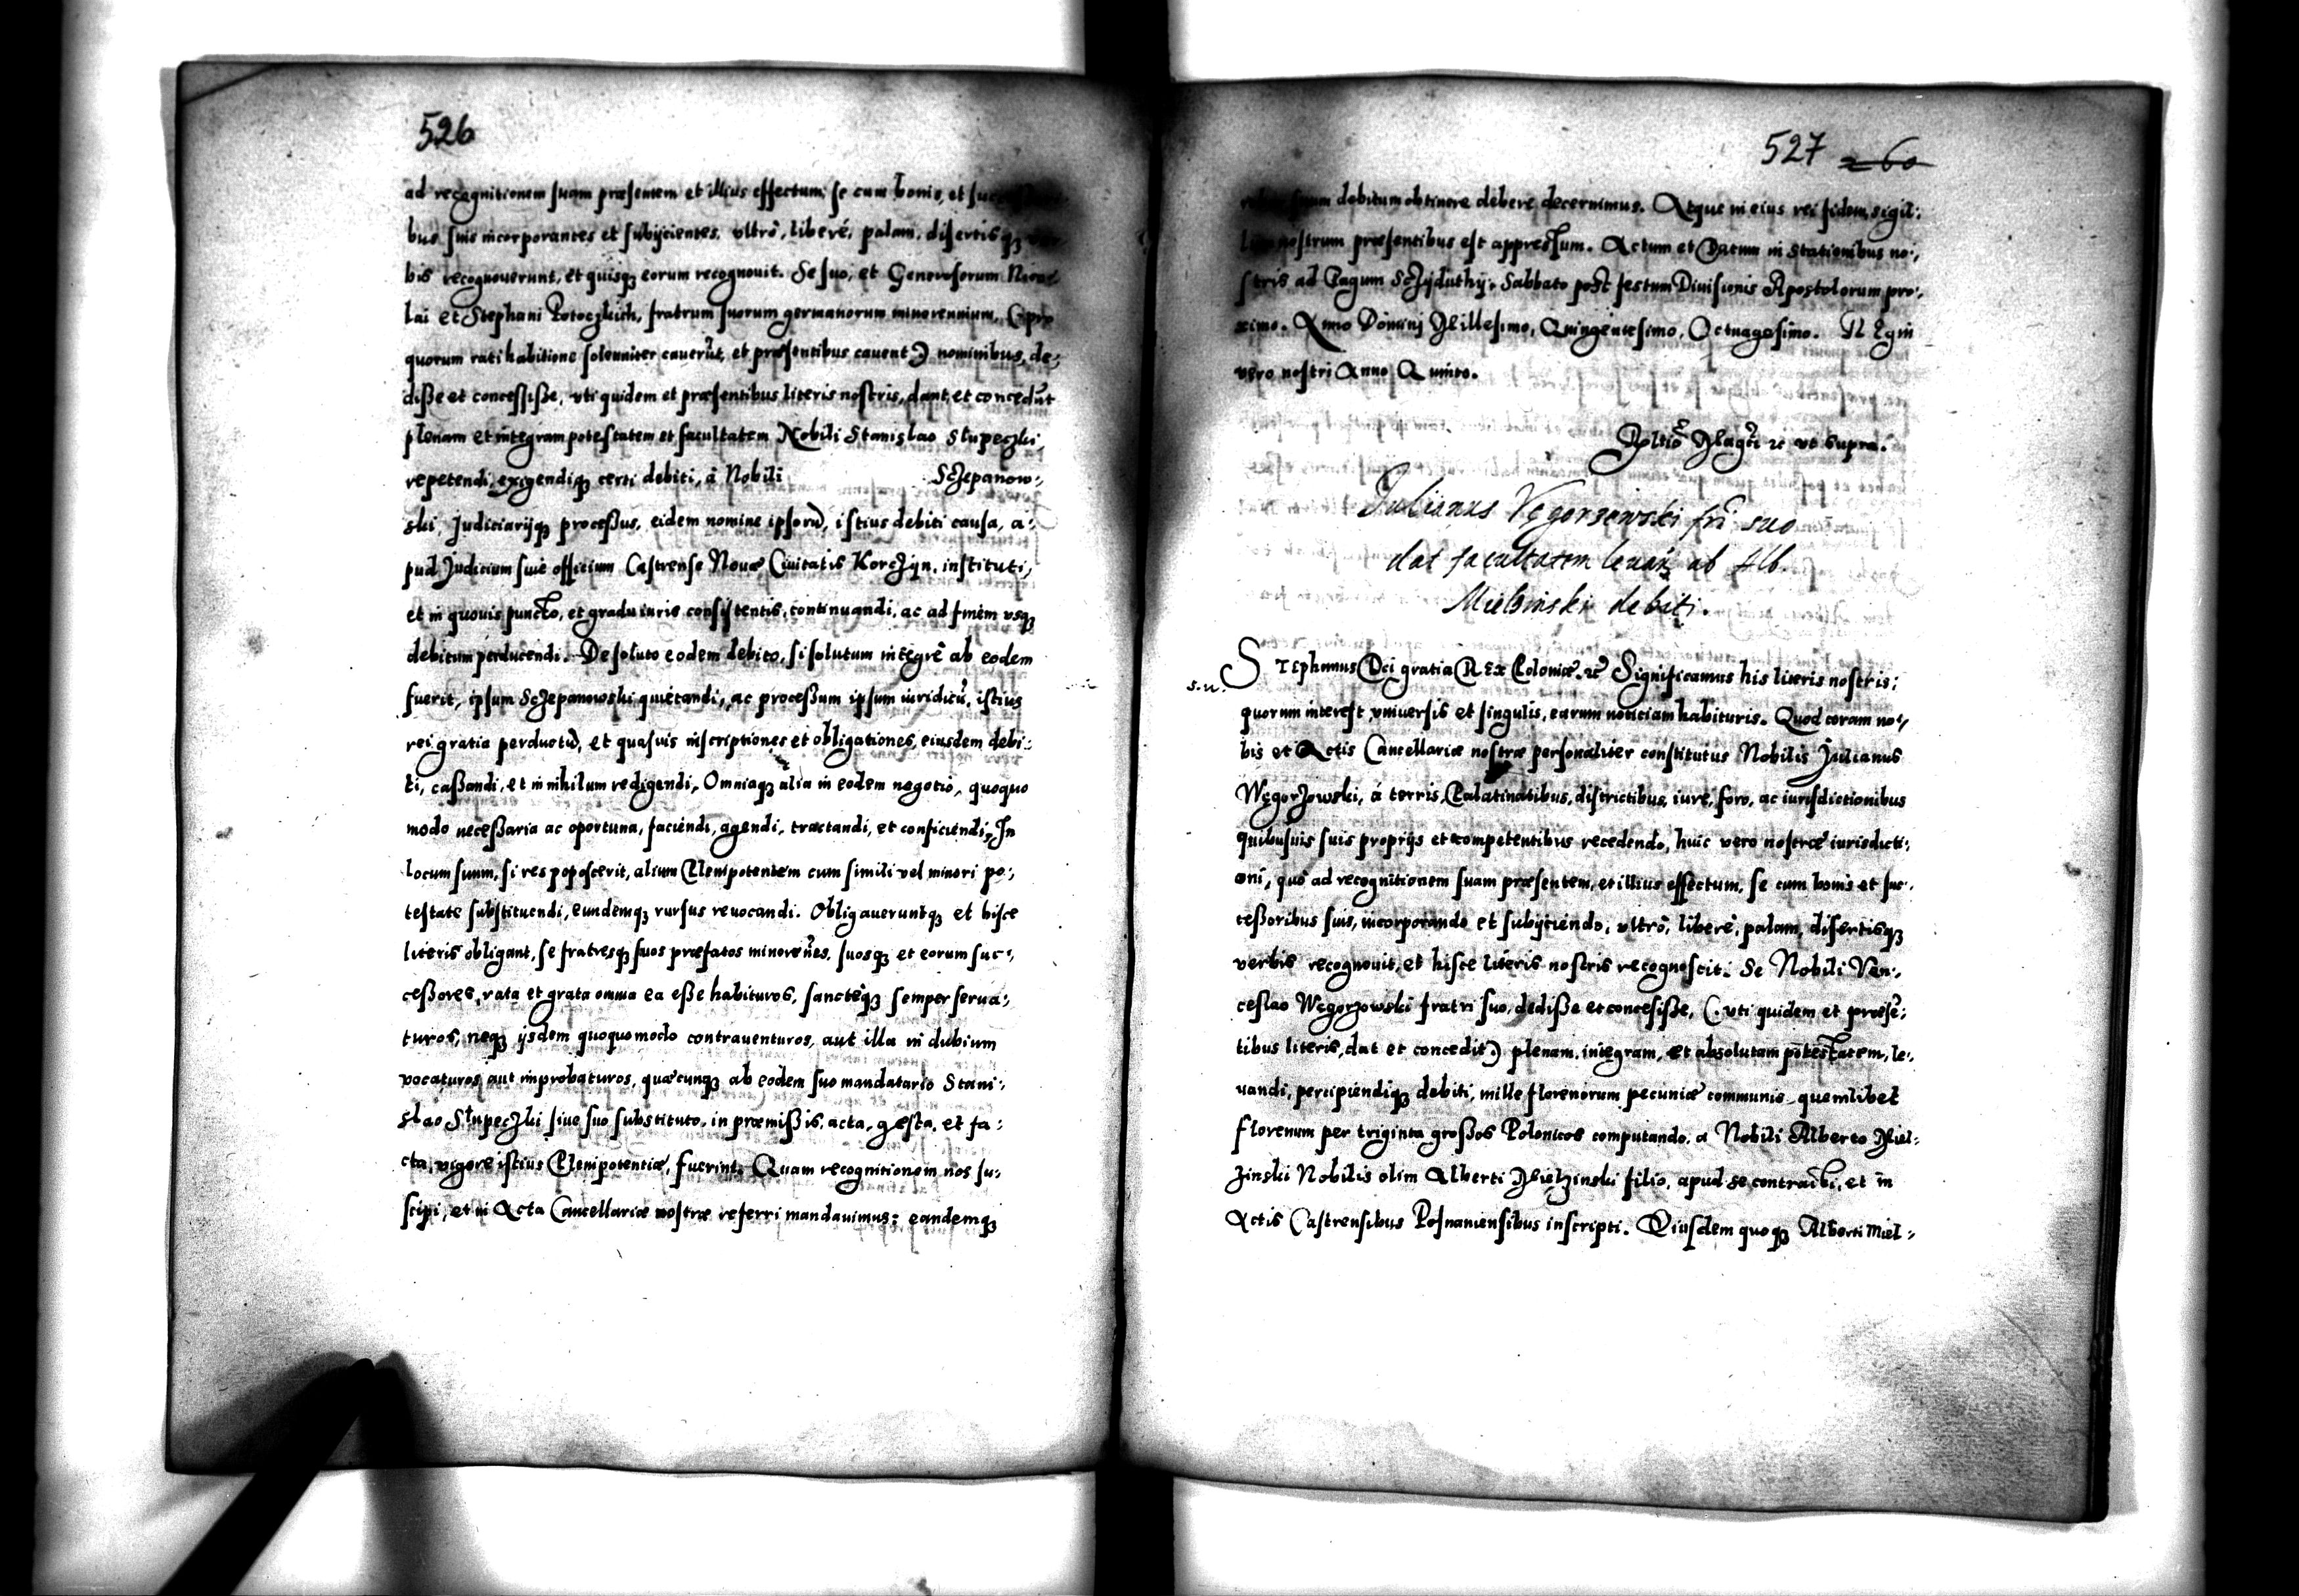 526
ad recognitionem suam præsentem et illius effectum, se cum bonis, et
bus suis incorporantes et subijcientes, vltrò, liberè, palam, disertisq3
bis recognouerunt, et quisq3 eorum recognouit. Se suo, et Generosorum
lai et Stephani Potoczkich, fratrum suorum germanorum minorennium, (pro
quorum ratihabitione solenniter cauerūt, et præsentibus cauent) nominibus, de:
diße et conceßiße, vti quidem et præsentibus literis nostris, dant, et concedūt
plenam et integram potestatem et facultatem Nobili Stanislao Słupeczki,
repetendi, exigendiq3 certi debiti, à Nobili Sczepanow:,
ski, Judiciarijq3 proceßus, eidem nomine ipsorū, istius debiti causa, a:
pud Judicium siue officium Castrense Nouæ Ciuitatis Korczyn, instituti,
et in quouis puncto, et gradu iuris consistentis, continuandi, ac ad finem vsq3
debitum perducendi. De soluto eodem debito, si solutum integrè ab eodem
fuerit, ipsum Sczepanowski quietandi, ac proceßum ipsum iuridicū, istius
rei gratia perductū, et quasuis inscriptiones et obligationes, eiusdem debi:
ti, caßandi, et in nihilum redigendi, Omniaq3 alia in eodem negotio, quoquo
modo neceßaria ac oportuna, faciendi, agendi, tractandi, et conficiendi, In
locum suum, si res poposcerit, alium Plenipotentem cum simili vel minori po:,
testate substituendi, eundemq3 rursus reuocandi. Obligaueruntq3 et hisce
literis obligant, se fratresq3 suos præfatos minorēnes, suosq3 et eorum suc:,
ceßores, rata et grata omnia ea eße habituros, sanctèq3 semper serua:,
turos, neq3 ijsdem quoquomodo contrauenturos, aut illa in dubium
vocaturos, aut improbaturos, quæcunq3 ab eodem suo mandatario Stani:,
slao Słupeczki siue suo substituto, in præmißis, acta, gesta, et fa:
cta, vigore istius Plenipotentiæ, fuerint. Quam recognitionem nos su:
scipi, et in Acta Cancellariæ nostræ referri mandauimus: eandemq3
527 260
suum debitum obtinere debere decernimus. Atque in eius rei fidem, sigil:
nostrum præsentibus est appressum. Actum et Datum in Stationibus no:,
stris ad Pagum Sczyduthy. Sabbato post festum Diuisionis Apostolorum pro:,
ximo. Anno Domini Millesimo, Quingentesimo, Octuagesimo. REgni
vero nostri Anno Quinto.
Rltiō Magci zc vt supra.
Julianus Vęgorzewski fri suo
dat facultatem leuan3 ab Alb.
Mielzinski debiti.
s.n.
STEphanus Dei gratia REx Poloniæ. zc Significamus his literis nostris:
quorum interest vniuersis et singulis, earum noticiam habituris. Quod coram no:,
bis et Actis Cancellariæ nostræ personaliter constitutus Nobilis Julianus
Węgorzowski, à terris, Palatinatibus, districtibus, iure, foro, ac iurisdictionibus
quibusuis suis proprijs et competentibus recedendo, huic vero nostræ iurisdicti:
oni, quò ad recognitionem suam præsentem, et illius effectum, se cum bonis et suc:
ceßoribus suis, incorporando et subijciendo, vltrò, liberè, palam, disertisq3
verbis recognouit, et hisce literis nostris recognoscit: Se Nobili Ven:,
ceslao Węgorzowski fratri suo, dediße et conceßiße, (. vti quidem et præsē:
tibus literis, dat et concedit.) plenam, integram, et absolutam potestatem, le:,
uandi, percipiendiq3 debiti, mille florenorum pecuniæ communis quemlibet
florenum per triginta großos Polonicos computando, a Nobili Alberto Miel:
zinski Nobilis olim Alberti Mielzinski filio, apud se contracti, et in
Actis Castrensibus Posnaniensibus inscripti. Eiusdem quoq3 Alberti Miel:,